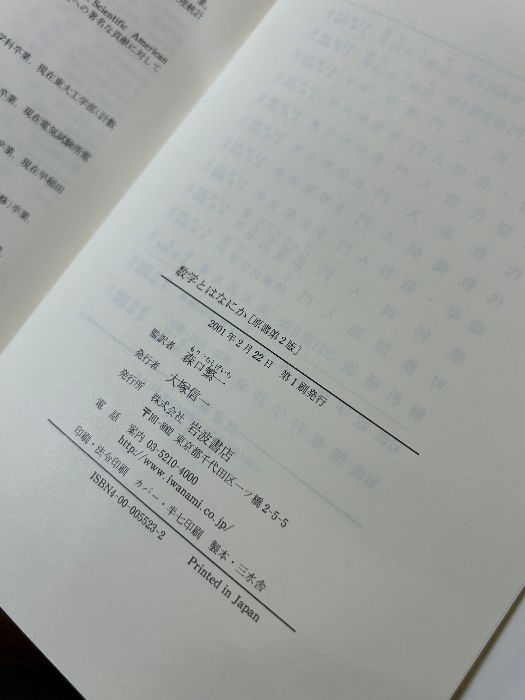 Scientific American
への著名な貢献に対して
学科卒業，現在東大工学部(計数
卒業，現在電気試験所電
卒業，現在早稲田
修)卒業，
数学とはなにか[原書第2版]
2001年2月22日　第1刷発行
監訳者　森口繁一
発行者　大塚信一
発行所　株式会社 岩波書店
〒101-8002 東京都千代田区一ツ橋2-5-5
電話　案内 03-5210-4000
http://www.iwanami.co.jp/
印刷・法令印刷　カバー・半七印刷　製本・三水舎
ISBN4-00-005523-2
Printed in Japan